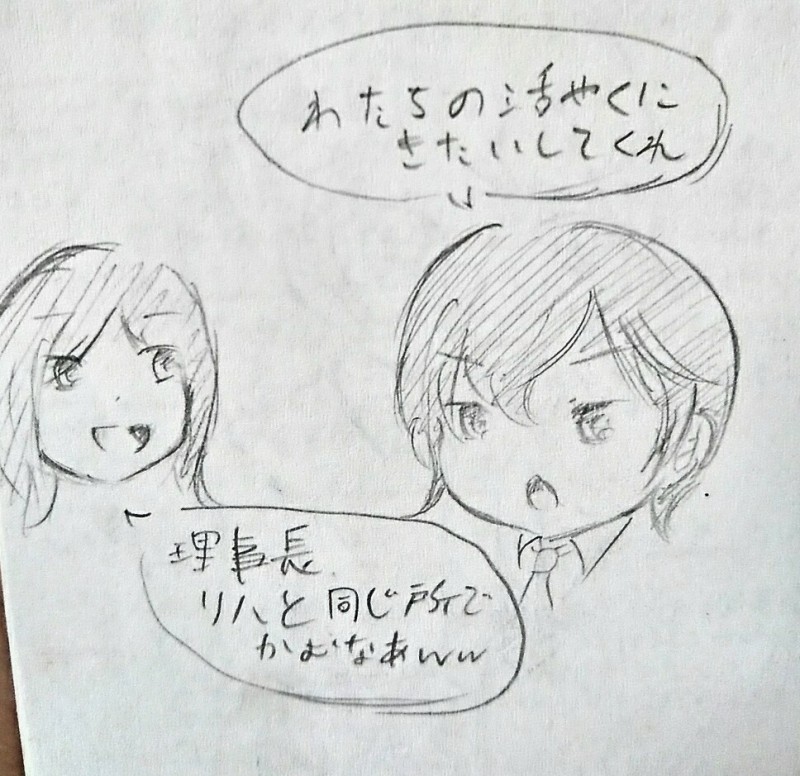 わたちの活やくに
きたいしてくれ
理事長
リハと同じ所で
かむなあww